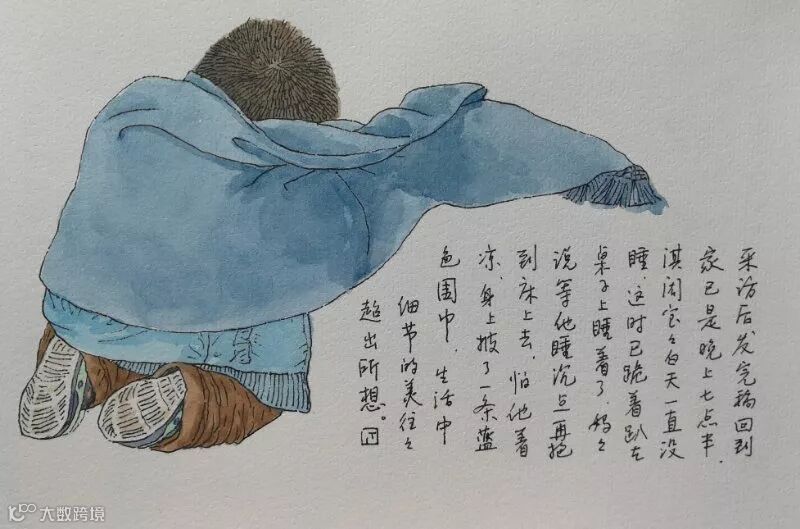 采访后发完稿回到
家已是晚上七点半,
淇闹宝々白天一直没
睡,这时已跪着趴在
桌子上睡着了,妈々
说等他睡沉点再抱
到床上去,怕他着
凉,身上披了一条蓝
色围巾,生活中
细节的美往々
超出所想。
大数跨境